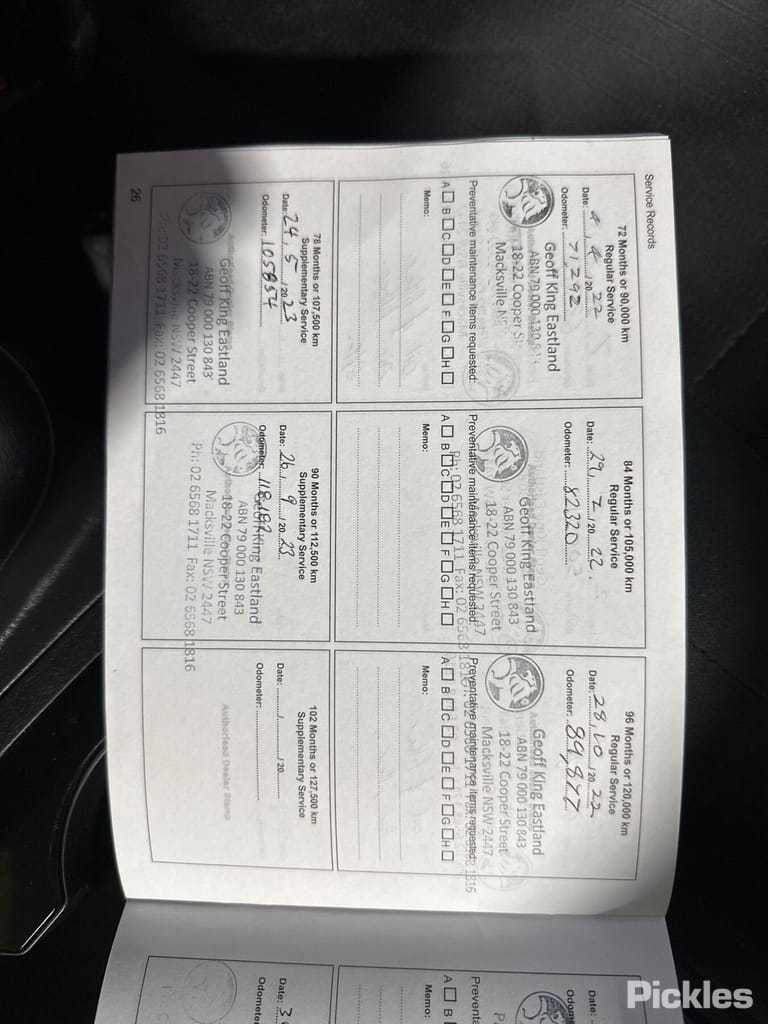 Service Records
72 Months or 90,000 km
Regular Service
Date: 4 / 4 / 20 22
Odometer: 71292
Geoff King Eastland
ABN 79 000 130 843
18-22 Cooper St
Macksville N
Preventative maintenance items requested:
A B C D E F G H
Memo:
84 Months or 105,000 km
Regular Service
Date: 29 / 7 / 20 22.
Odometer: 82320
Geoff King Eastland
ABN 79 000 130 843
18-22 Cooper Street
Macksville NSW 2447
Ph: 02 6568 1711 Fax: 02 6568 1816
Preventative maintenance items requested:
A B C D E F G H
Memo:
96 Months or 120,000 km
Regular Service
Date: 28 / 10 / 20 22
Odometer: 89,877
Geoff King Eastland
ABN 79 000 130 843
18-22 Cooper Street
Macksville NSW 2447
1816
Preventative maintenance items requested:
A B C D E F G H
Memo:
78 Months or 107,500 km
Supplementary Service
Date: 24 / 5 / 20 23
Odometer: 105854
Geoff King Eastland
ABN 79 000 130 843
18-22 Cooper Street
Macksville NSW 2447
Ph: 02 6568 1711 Fax: 02 6568 1816
90 Months or 112,500 km
Supplementary Service
Date: 26 / 9 / 20 23
Odometer: 118182
Geoff King Eastland
ABN 79 000 130 843
18-22 Cooper Street
Macksville NSW 2447
Ph: 02 6568 1711 Fax: 02 6568 1816
102 Months or 127,500 km
Supplementary Service
Date: / / 20
Odometer:
Authorised Dealer Stamp
26
Preventa
A B
Memo:
Date: 3
Odometer
Pickles